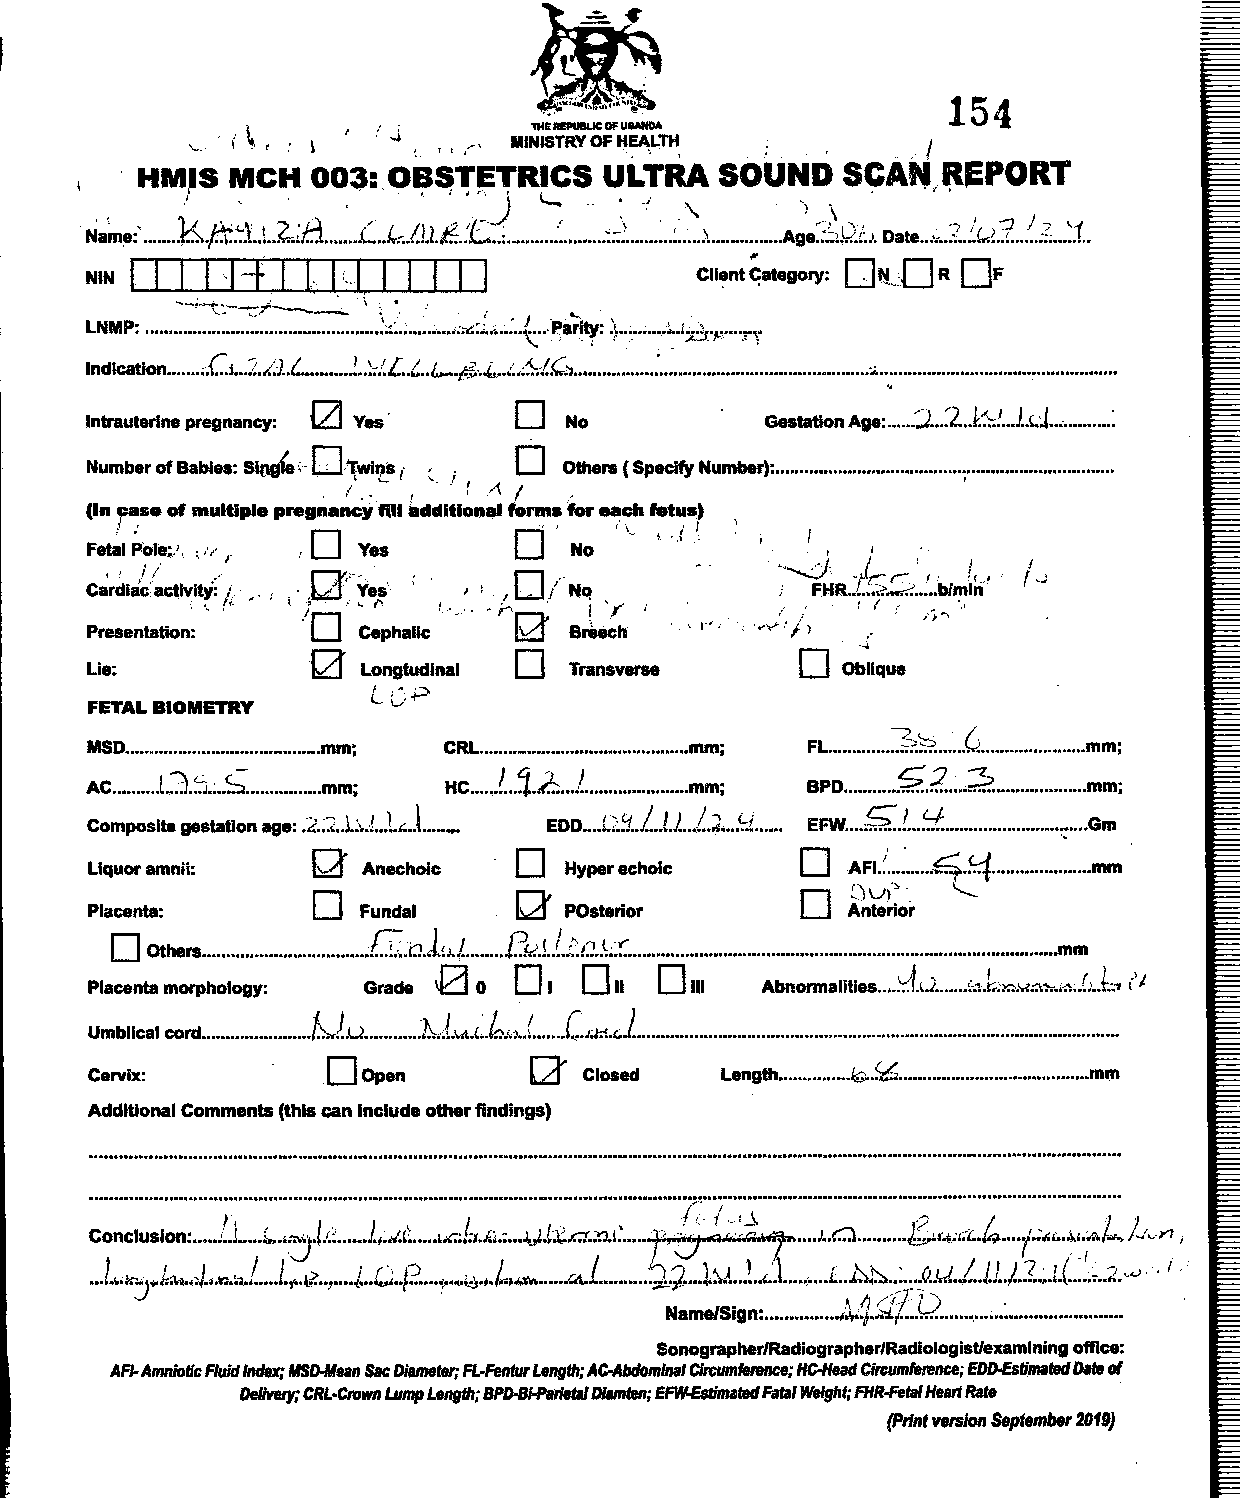 THE REPUBLIC OF UGANDA
MINISTRY OF HEALTH
154
HMIS MCH 003: OBSTETRICS ULTRA SOUND SCAN REPORT
Name: KAYIZA CLAIRE Age Date /07/24
NIN Client Category: N R F
LNMP: Parity:
Indication WELL BEING
Intrauterine pregnancy: Yes No Gestation Age: 22W1d
Number of Babies: Single Twins Others ( Specify Number):
(In case of multiple pregnancy fill additional forms for each fetus)
Fetal Pole: Yes No
Cardiac activity: Yes No FHR b/min
Presentation: Cephalic Breech
Lie: Longtudinal Transverse Oblique
LOP
FETAL BIOMETRY
MSD mm; CRL mm; FL mm;
AC 179.5 mm; HC 192.1 mm; BPD 52.3 mm;
Composite gestation age: 22W1d EDD 09/11/24 EFW 514 Gm
Liquor amnii: Anechoic Hyper echoic AFI 54 mm
DVP
Placenta: Fundal POsterior Anterior
Others Fundal Posterior mm
Placenta morphology: Grade 0 I II III Abnormalities No abnormalities
Umblical cord No Nuchal Cord
Cervix: Open Closed Length mm
Additional Comments (this can include other findings)
fetus
Conclusion: A single live intrauterine pregnancy in Breech presentation,
longitudinal lie, LOP position at 22W1d,
Name/Sign:
Sonographer/Radiographer/Radiologist/examining office:
AFI- Amniotic Fluid Index; MSD-Mean Sac Diameter; FL-Fentur Length; AC-Abdominal Circumference; HC-Head Circumference; EDD-Estimated Date of
Delivery; CRL-Crown Lump Length; BPD-Bi-Parietal Diamten; EFW-Estimated Fatal Weight; FHR-Fetal Heart Rate
(Print version September 2019)